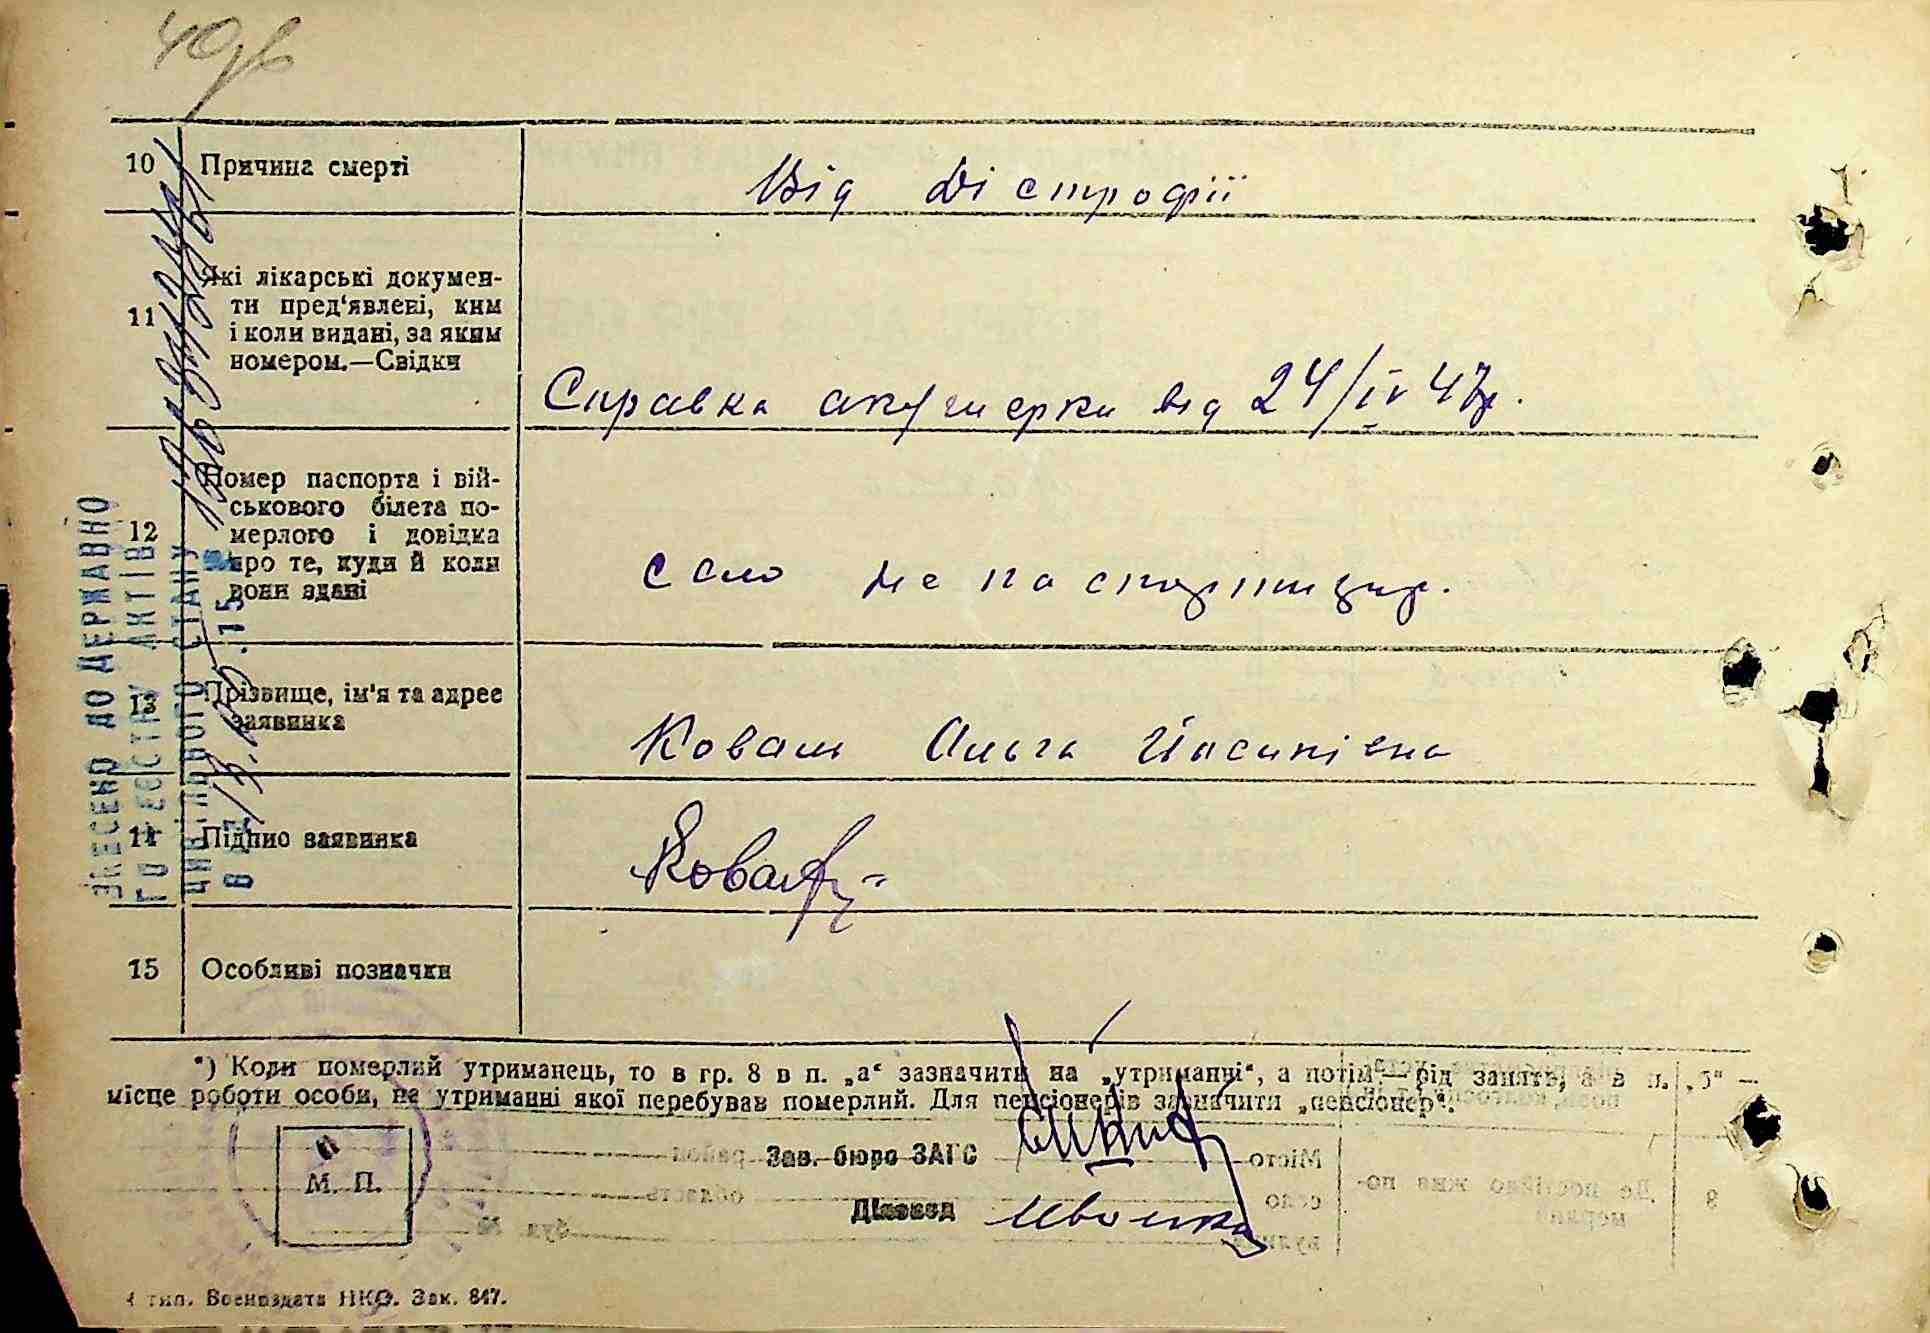 40
10 Причина смерті
Від Дістрофії
11 Які лікарські докумен-
ти пред‘явлені, ким
і коли видані, за яким
номером.—Свідки
Справка акушерки від 24/IV 47р.
12 Номер паспорта і вій-
ськового білета по-
мерлого і довідка
про те, куди й коли
вони здані
село не паспортизир.
13 Прізвище, ім'я та адрес
заявника
Коваль Ольга Йосипівна
14 Підпис заявника
Коваль
15 Особливі позначки
ЗНЕСЕНО ДО ДЕРЖАВНО
ГО РЕЄСТРУ АКТІВ
ЦИВІЛЬНОГО СТАНУ
*) Коли померлий утриманець, то в гр. 8 в п. „а“ зазначити на „утриманні“, а потім — рід занять, а в п. „б“ —
місце роботи особи, на утриманні якої перебував померлий. Для пенсіонерів зазначити „пенсіонер“.
Зав. бюро ЗАГС
М. П.
Діловод
тип. Воениздата НКО. Зак. 847.